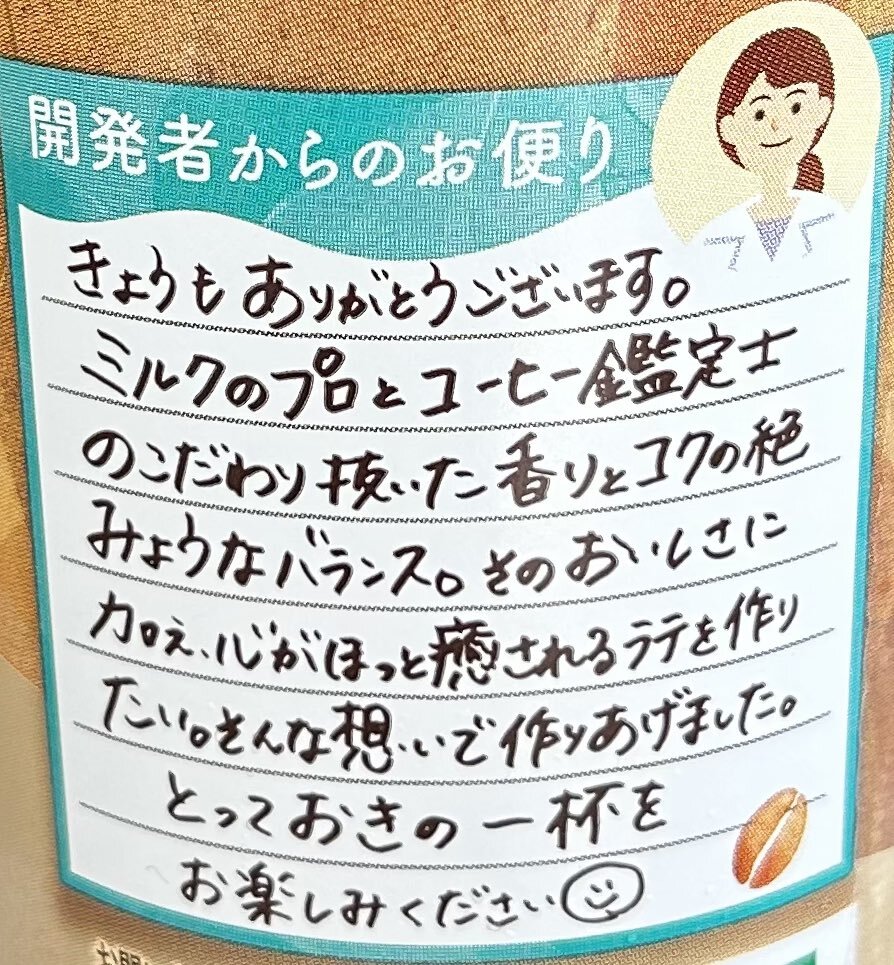 開発者からのお便り
きょうもありがとうございます。
ミルクのプロとコーヒー鑑定士
のこだわり抜いた香りとコクの絶
みょうなバランス。そのおいしさに
加え、心がほっと癒されるラテを作り
たい。そんな想いで作りあげました。
とっておきの一杯を
お楽しみください